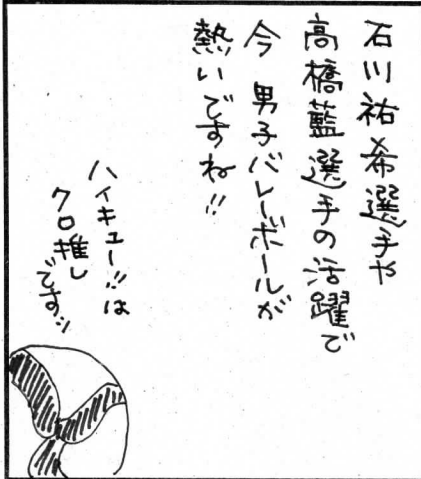 石川祐希選手や
高橋藍選手の活躍で
今 男子バレーボールが
熱いですね!!
ハイキュー!!は
クロ推し
です!!